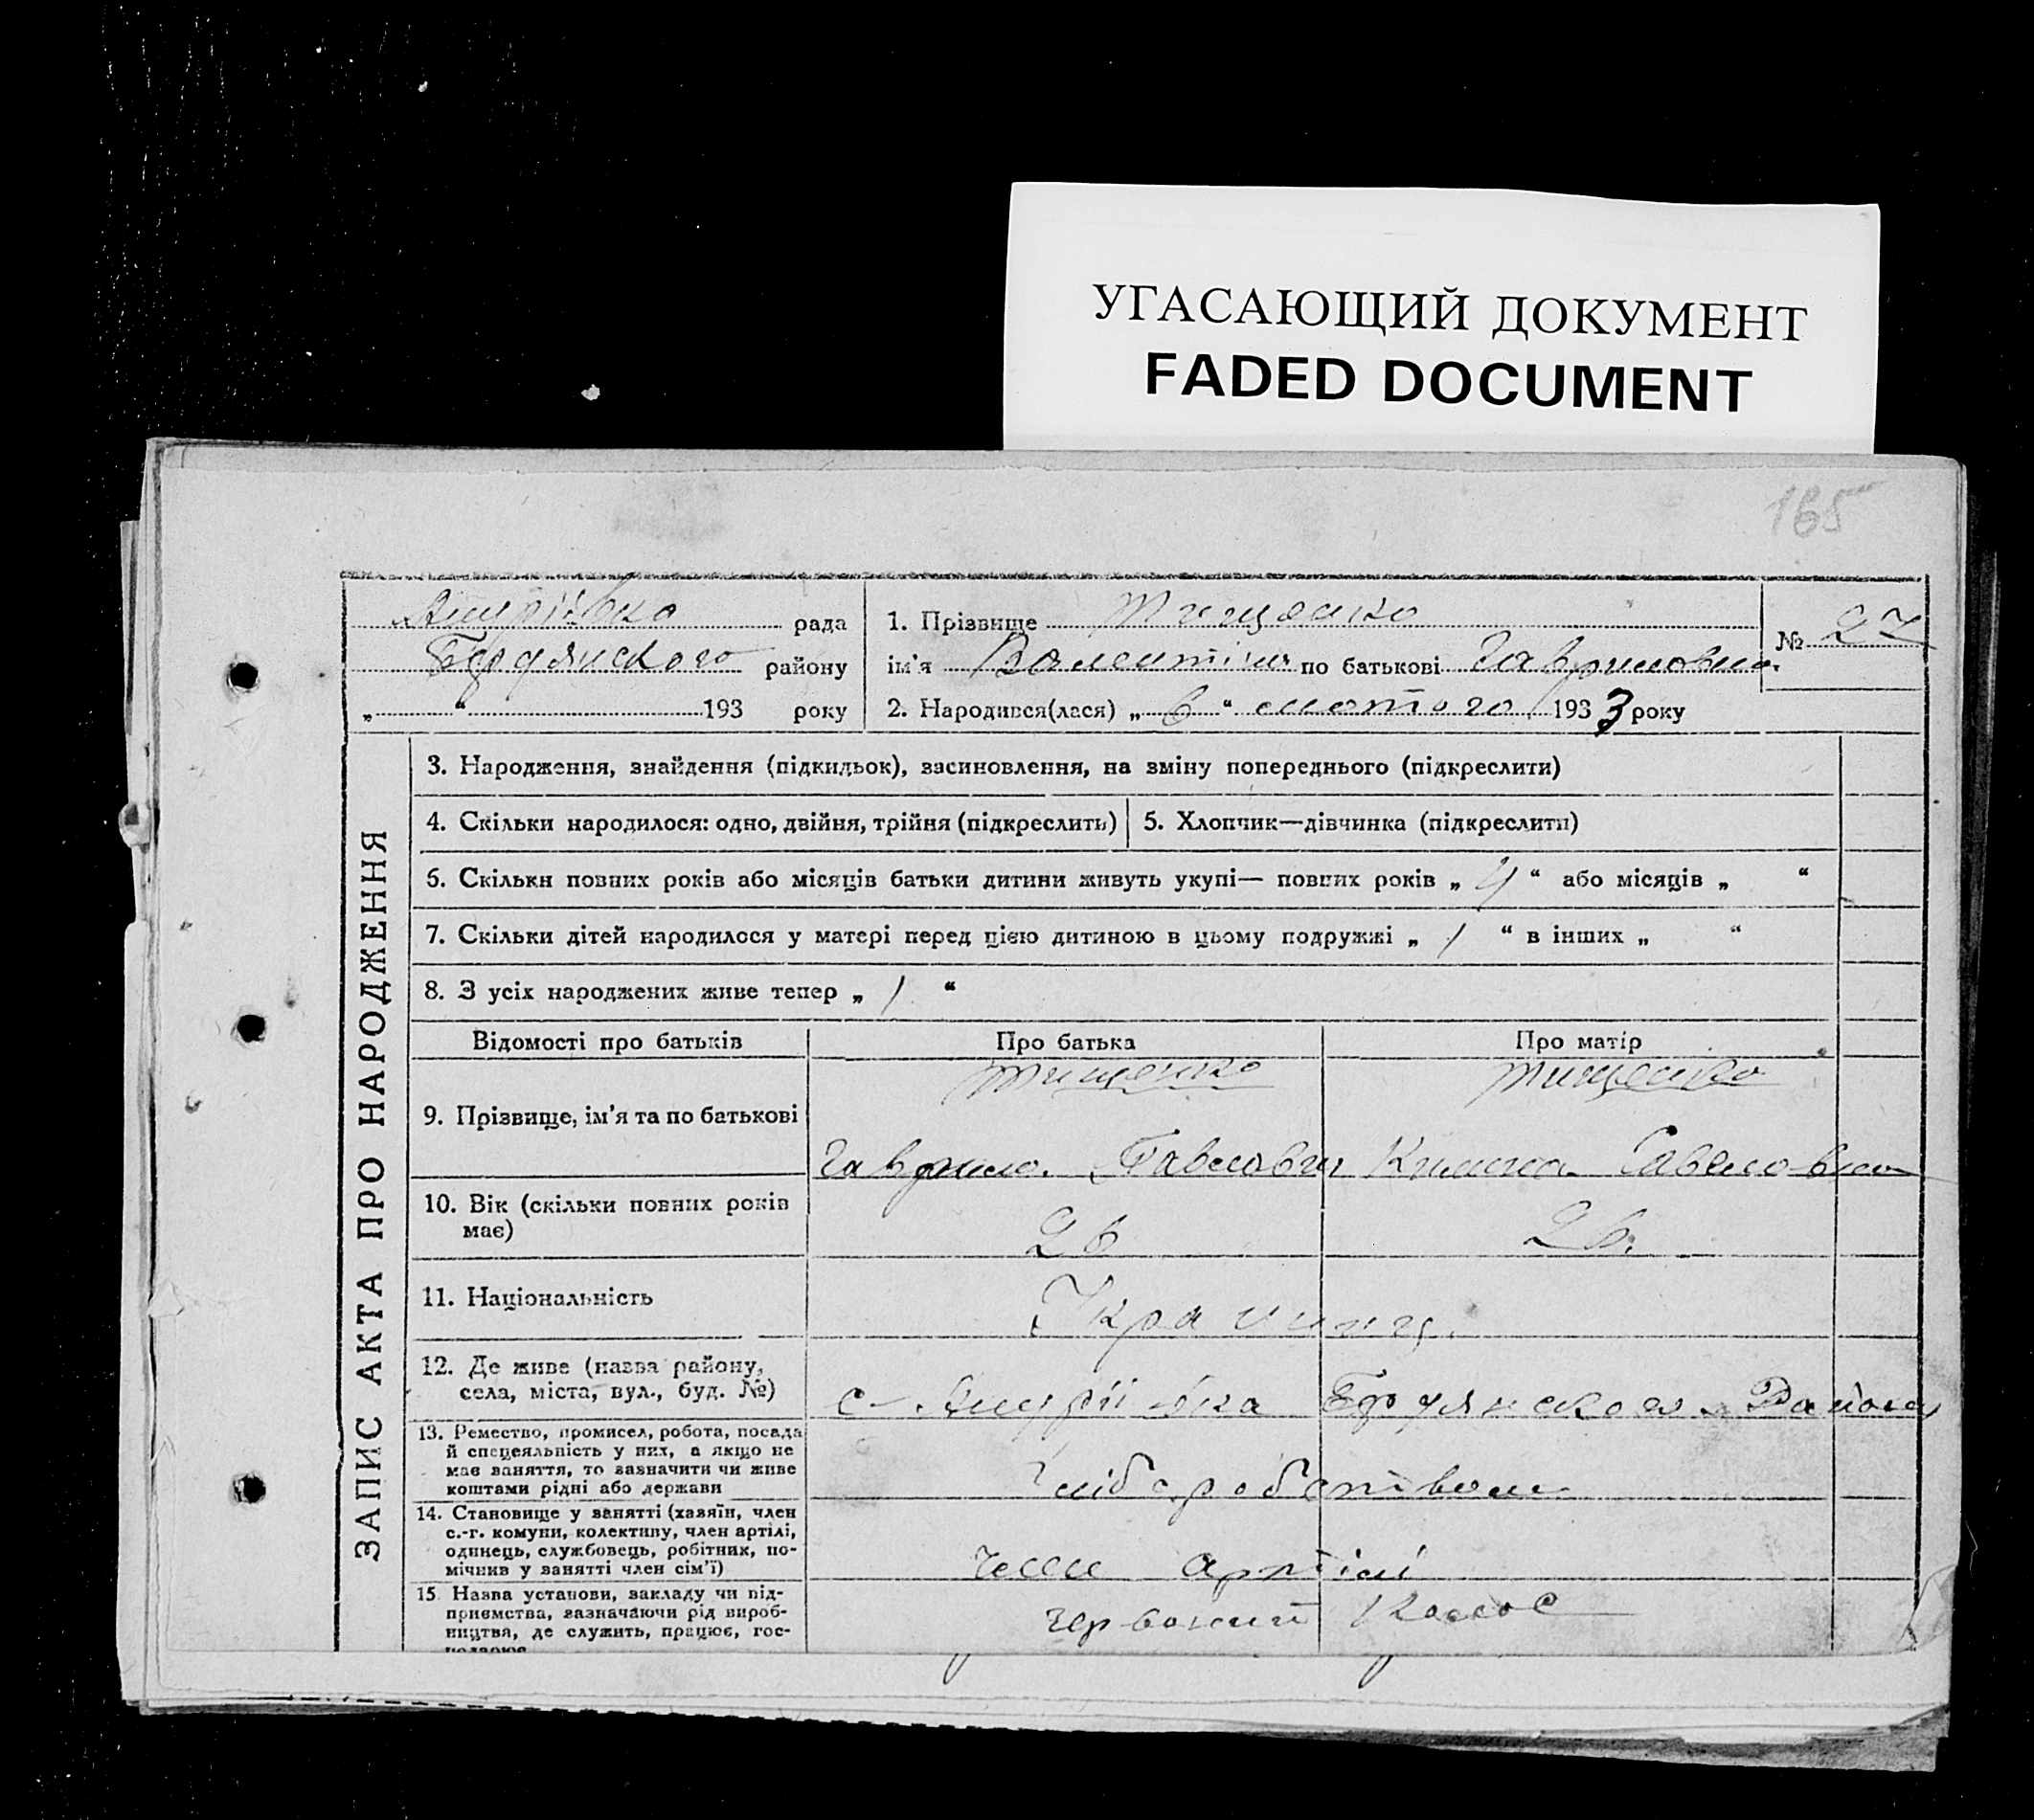 УГАСАЮЩИЙ ДОКУМЕНТ
FADED DOCUMENT
165
ЗАПИС АКТА ПРО НАРОДЖЕННЯ
рада
Бердянского району
„ “ 193 року
1. Прізвище Тищенко
ім'я Валентіна по батькові Гавриловна.
2. Народився(лася) „ 6 “ лютого 1933 року
№ 27
3. Народження, знайдення (підкидьок), засиновлення, на зміну попереднього (підкреслити)
4. Скільки народилося: одно, двійня, трійня (підкреслить)
5. Хлопчик—дівчинка (підкреслити)
6. Скільки повних років або місяців батьки дитини живуть укупі— повних років „ 4 “ або місяців „ “
7. Скільки дітей народилося у матері перед цією дитиною в цьому подружжі „ 1 “ в інших „ “
8. З усіх народжених живе тепер „ 1 “
Відомості про батьків Про батька Про матір
Тищенко Тищенко
9. Прізвище, ім'я та по батькові
Гаврило Савеловна
10. Вік (скільки повних років
має)
26 26.
11. Національність
Украинци.
12. Де живе (назва району,
села, міста, вул., буд. №)
с. Бердянского Району
13. Ремество, промисел, робота, посада
й спецеяльність у них, а якщо не
має заняття, то зазначити чи живе
коштами рідні або держави
хліборобством
14. Становище у занятті (хазяїн, член
с.-г. комуни, колективу, член артілі,
одинець, службовець, робітник, по-
мічнив у занятті член сім'ї)
член артілі
15 Назва установи, закладу чи під-
приємства, зазначаючи рід вироб-
ництва, де служить, працює, гос-
подарює
червоний Колос